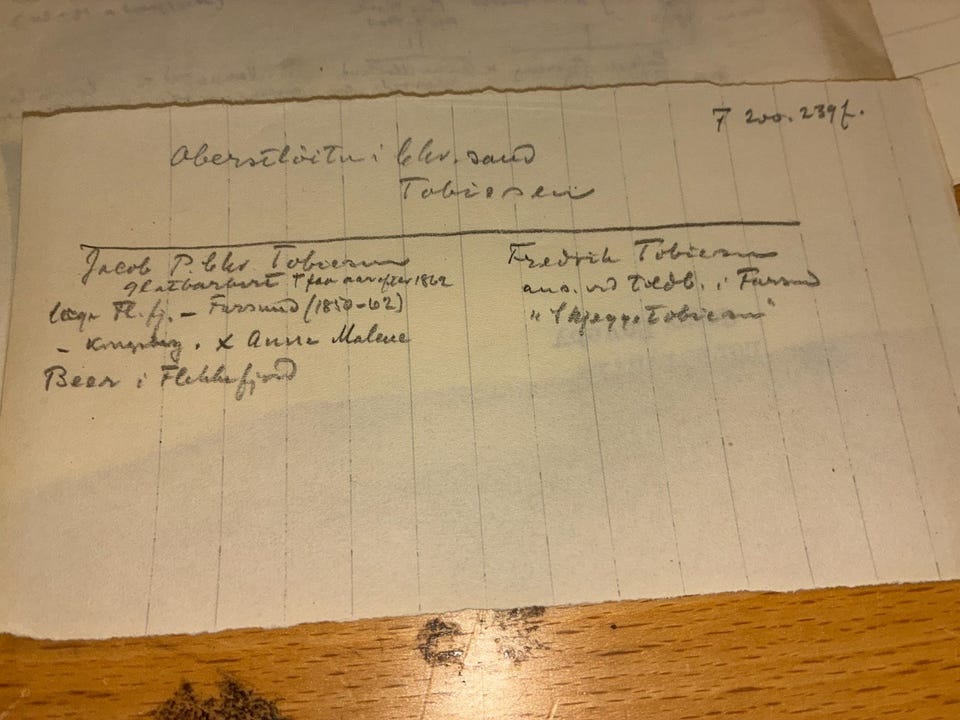 F 200. 239f.
Oberstløitn i Chr.sand
Tobiesen
Jacob P. Chr Tobiesen
glatbarbert † faa aar efter 1862
læge Fl.fj. – Farsund (1850-62)
– Kongsberg. x Anna Malene
Beer i Flekkefjord
Fredrik Tobiesen
ans. ved toldb. i Farsund
"Skjegge-Tobiesen"